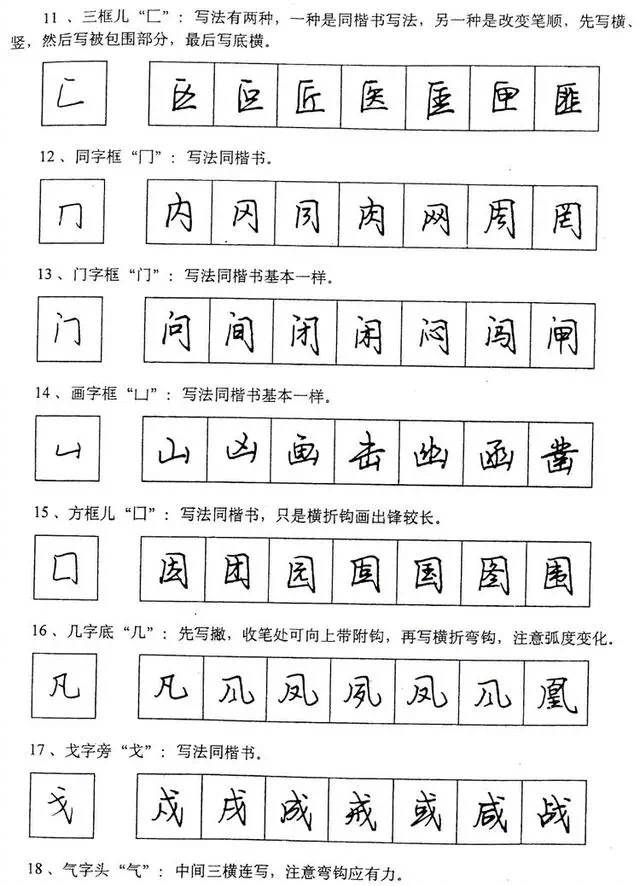 11、三框儿“匚”：写法有两种，一种是同楷书写法，另一种是改变笔顺，先写横、
竖，然后写被包围部分，最后写底横。
匚 区 巨 匠 医 匡 匣 匪
12、同字框“冂”：写法同楷书。
冂 内 冈 同 肉 网 周 罔
13、门字框“门”：写法同楷书基本一样。
门 问 间 闭 闲 闷 闯 闸
14、画字框“凵”：写法同楷书基本一样。
凵 山 凶 画 击 幽 函 凿
15、方框儿“囗”：写法同楷书，只是横折钩画出锋较长。
囗 因 团 园 固 国 图 围
16、几字底“几”：先写撇，收笔处可向上带附钩，再写横折弯钩，注意弧度变化。
凡 凡 凤 夙 凤 凰
17、戈字旁“戈”：写法同楷书。
戈 戍 戌 成 戒 或 咸 战
18、气字头“气”：中间三横连写，注意弯钩应有力。